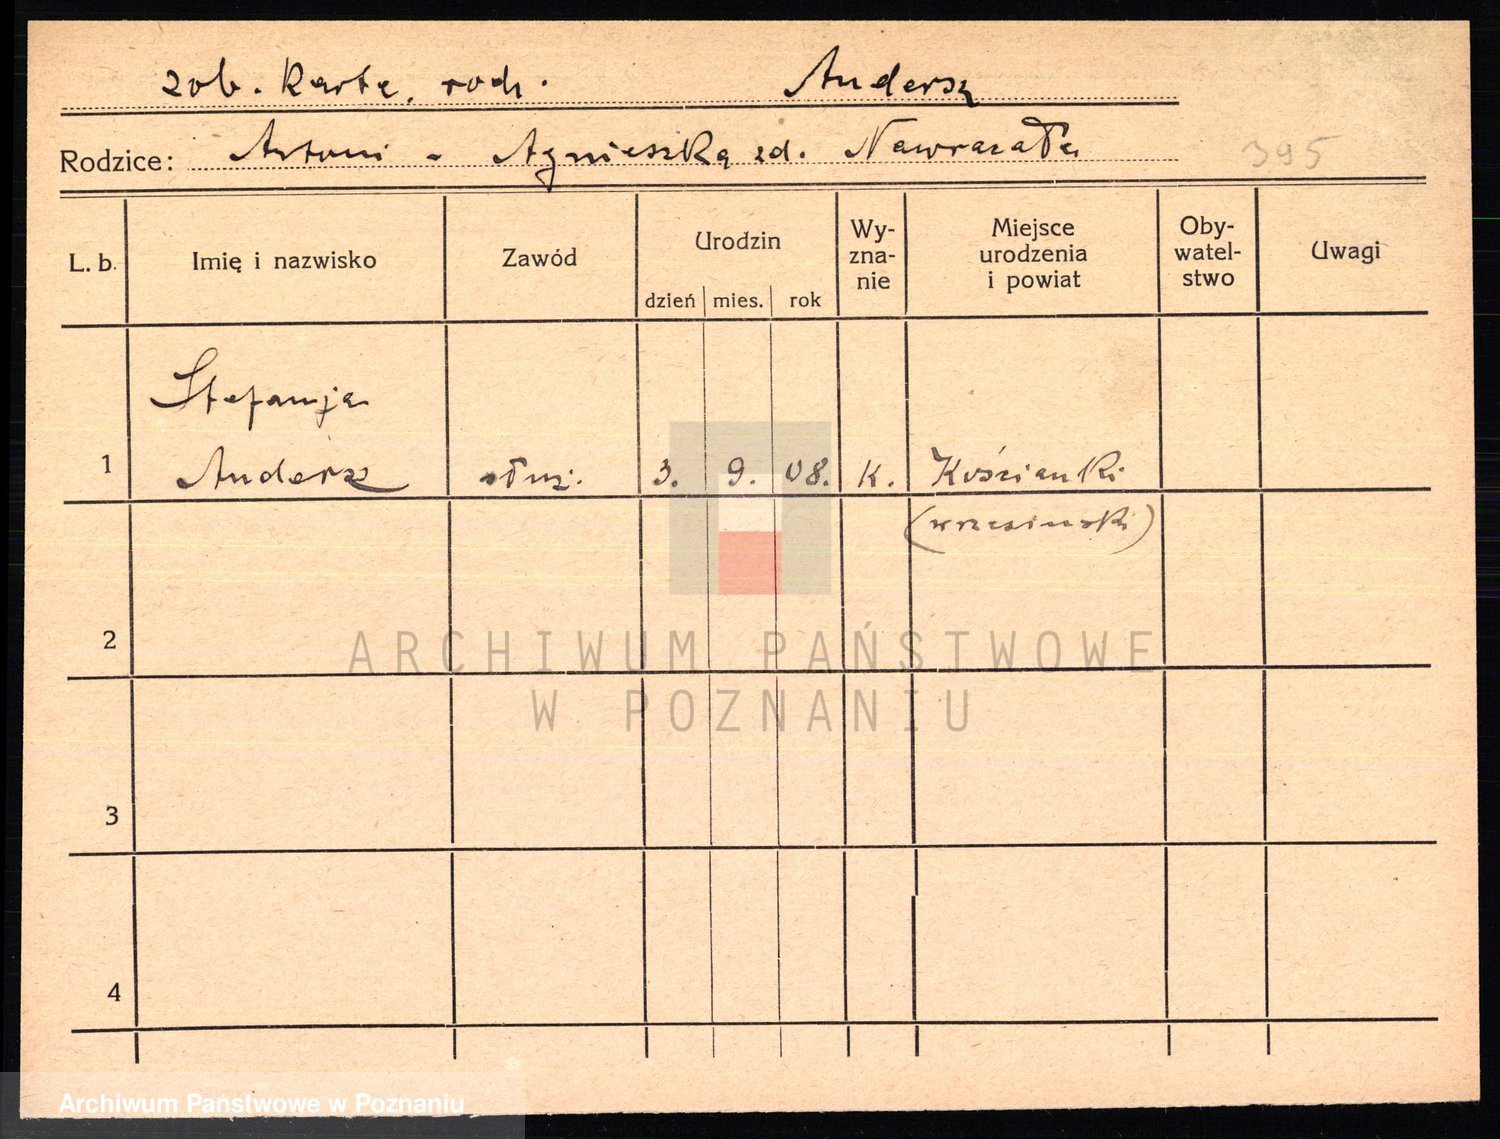 zob. Kartę rodz. Andersz
Rodzice: Antoni - Agnieszka zd. Nawrzała
395
L. b. Imię i nazwisko Zawód Urodzin dzień mies. rok Wy- zna- nie Miejsce urodzenia i powiat Oby- watel- stwo Uwagi
Stefanja
1 Andersz służ. 3. 9. 08. K. Kościanki
(wrzesiński)
2
ARCHIWUM PAŃSTWOWE
W POZNANIU
3
4
Archiwum Państwowe w Poznaniu